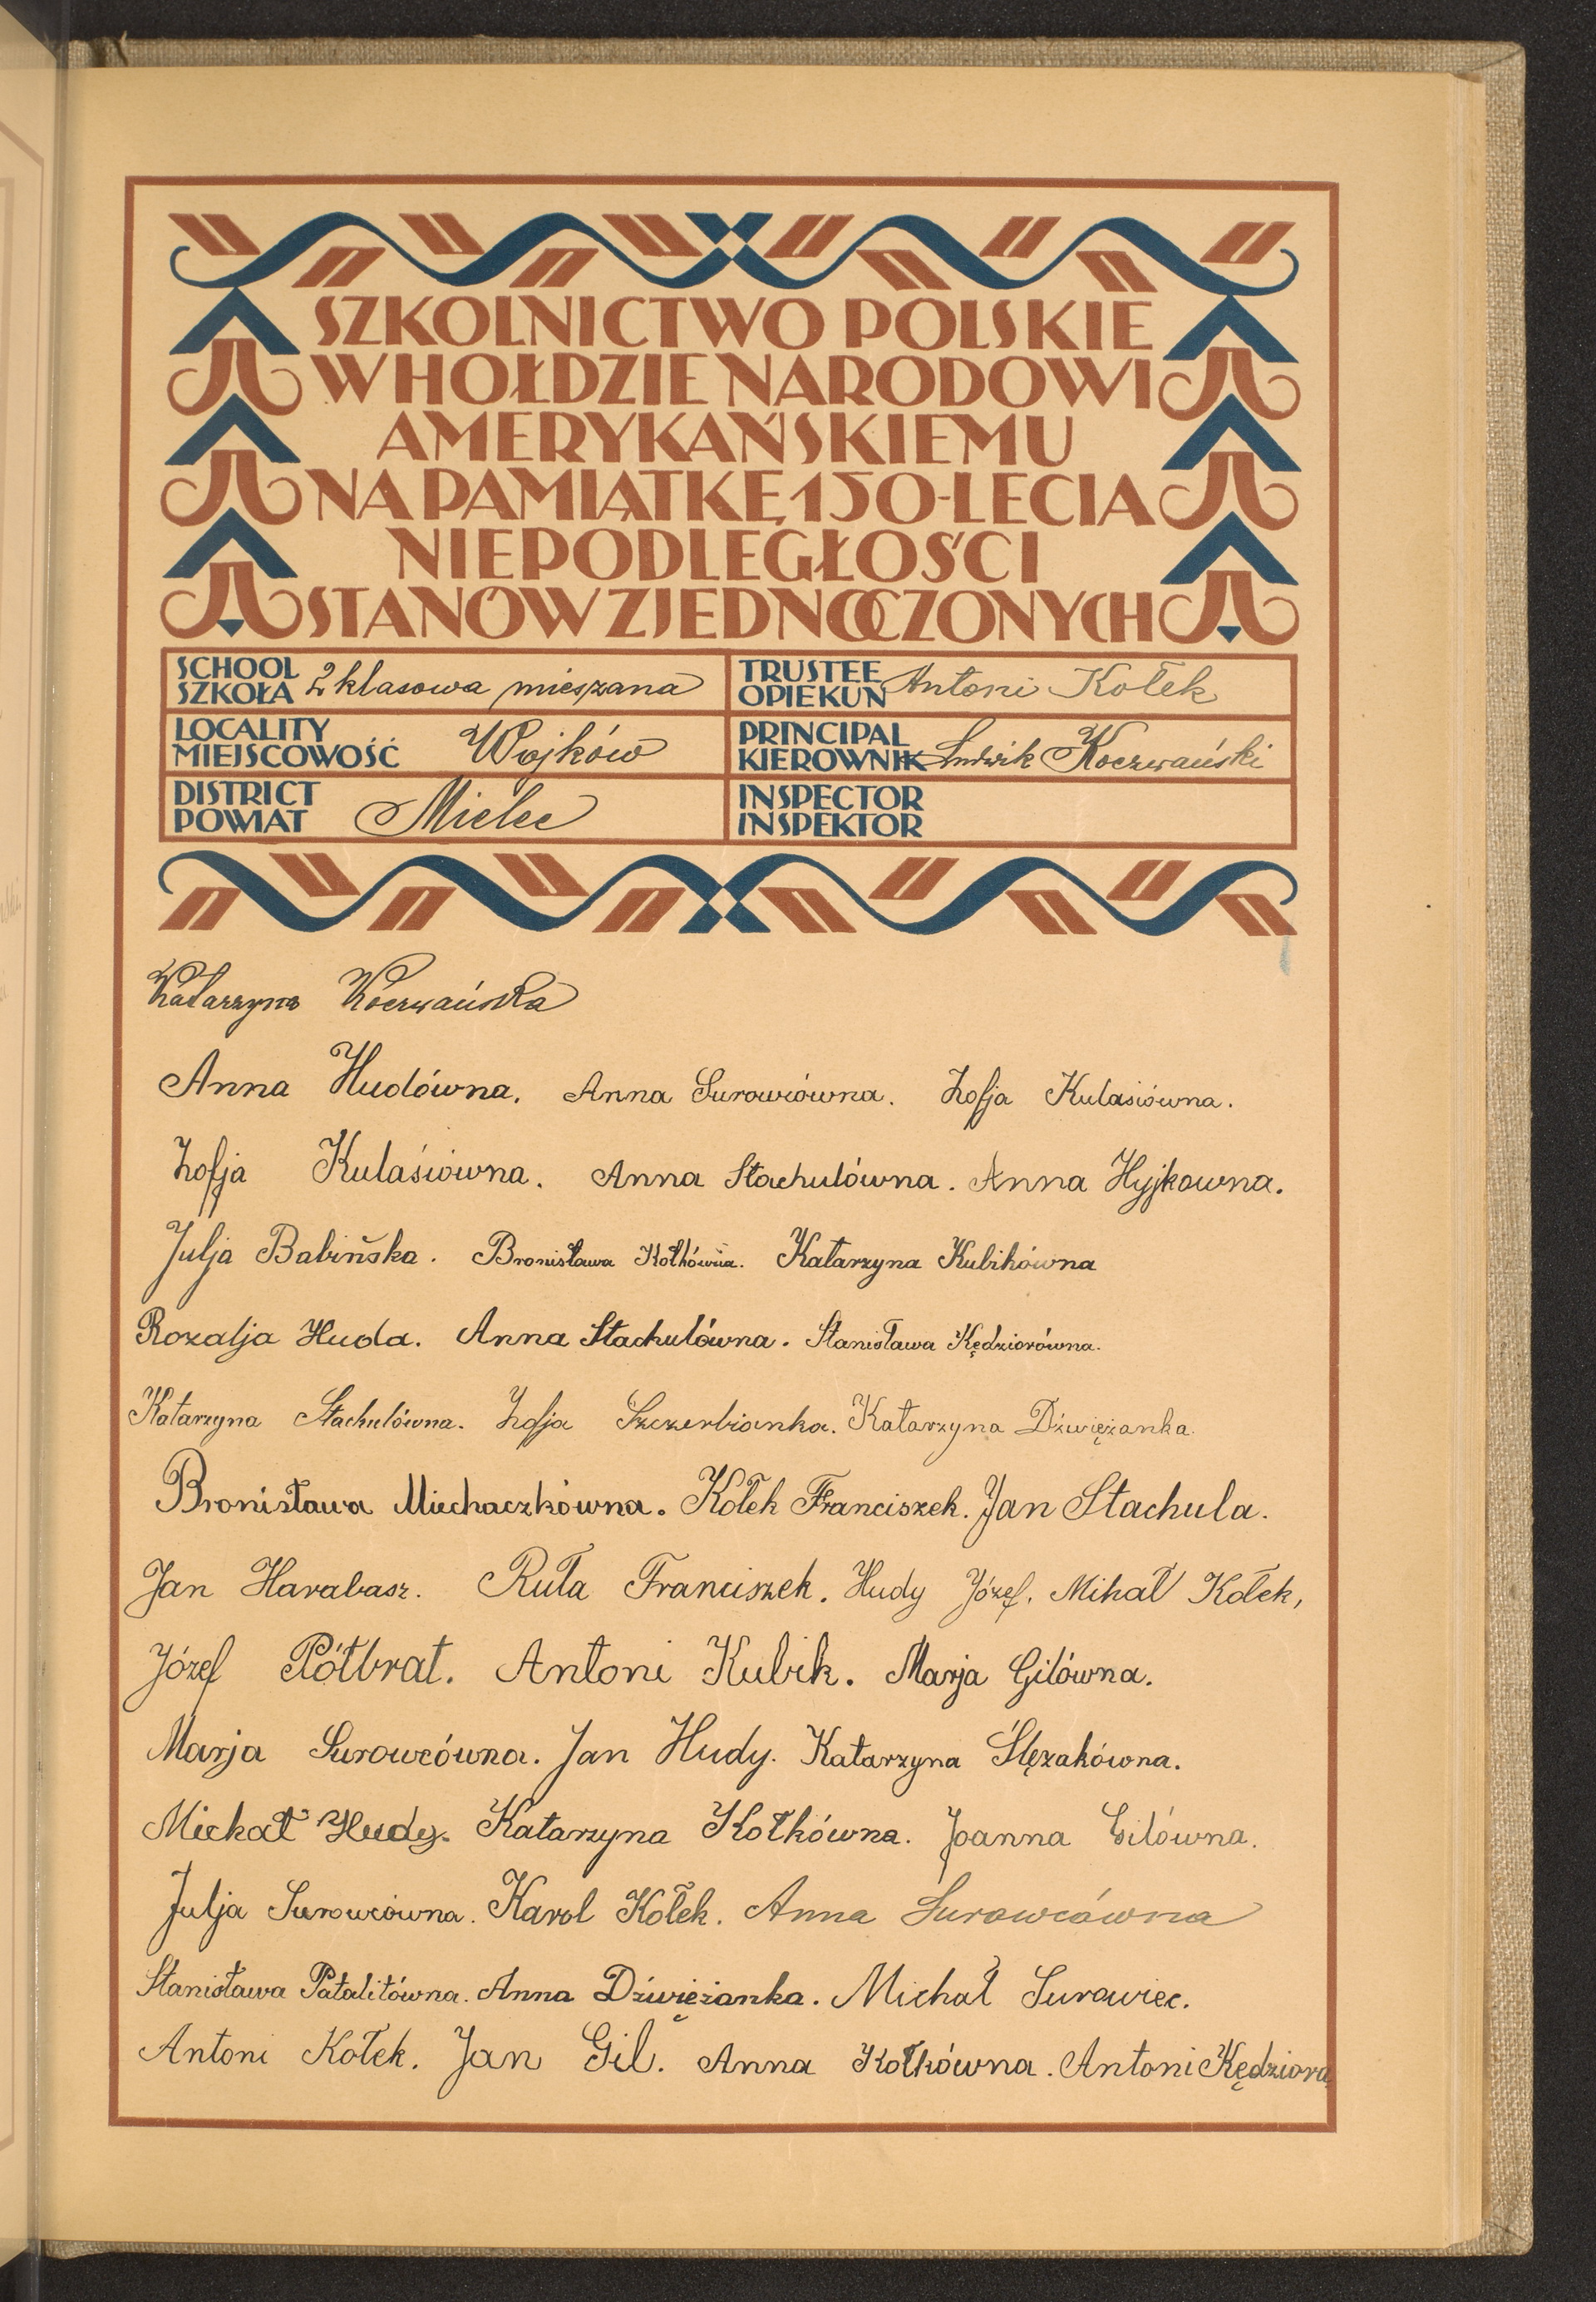 SZKOLNICTWO POLSKIE
W HOŁDZIE NARODOWI
AMERYKAŃSKIEMU
NA PAMIĄTKĘ 150-LECIA
NIEPODLEGŁOŚCI
STANÓW ZJEDNOCZONYCH
SCHOOL
SZKOŁA 2 klasowa mieszana
TRUSTEE
OPIEKUN Antoni Kołek
LOCALITY
MIEJSCOWOŚĆ Wojków
PRINCIPAL
KIEROWNIK Ludwik Koczwański
DISTRICT
POWIAT Mielec
INSPECTOR
INSPEKTOR
Katarzyna Koczwańska
Anna Hudówna. Anna Surowcówna. Zofja Kulasiówna.
Zofja Kulaśiówna. Anna Stachulówna. Anna Hyjkowna.
Julja Babińska. Bronisława Kołkówna. Katarzyna Kubikówna
Rozalja Huda. Anna Stachulówna. Stanisława Kędziorówna.
Katarzyna Stachulówna. Zofja Szczerbianka. Katarzyna Dźwiężanka.
Bronisława Miechaczkówna. Kołek Franciszek. Jan Stachula.
Jan Harabasz. Ruła Franciszek. Hudy Józef. Mihał Kołek,
Józef Półbrat. Antoni Kubik. Marja Gilówna.
Marja Surowcówna. Jan Hudy. Katarzyna Ślęzakówna.
Michał Hudy. Katarzyna Kołkówna. Joanna Gilówna.
Julja Surowcówna. Karol Kołek. Anna Surowcówna
Stanisława Patalitówna. Anna Dźwiężanka. Michał Surowiec.
Antoni Kołek. Jan Gil. Anna Kołkówna. Antoni Kędziora,